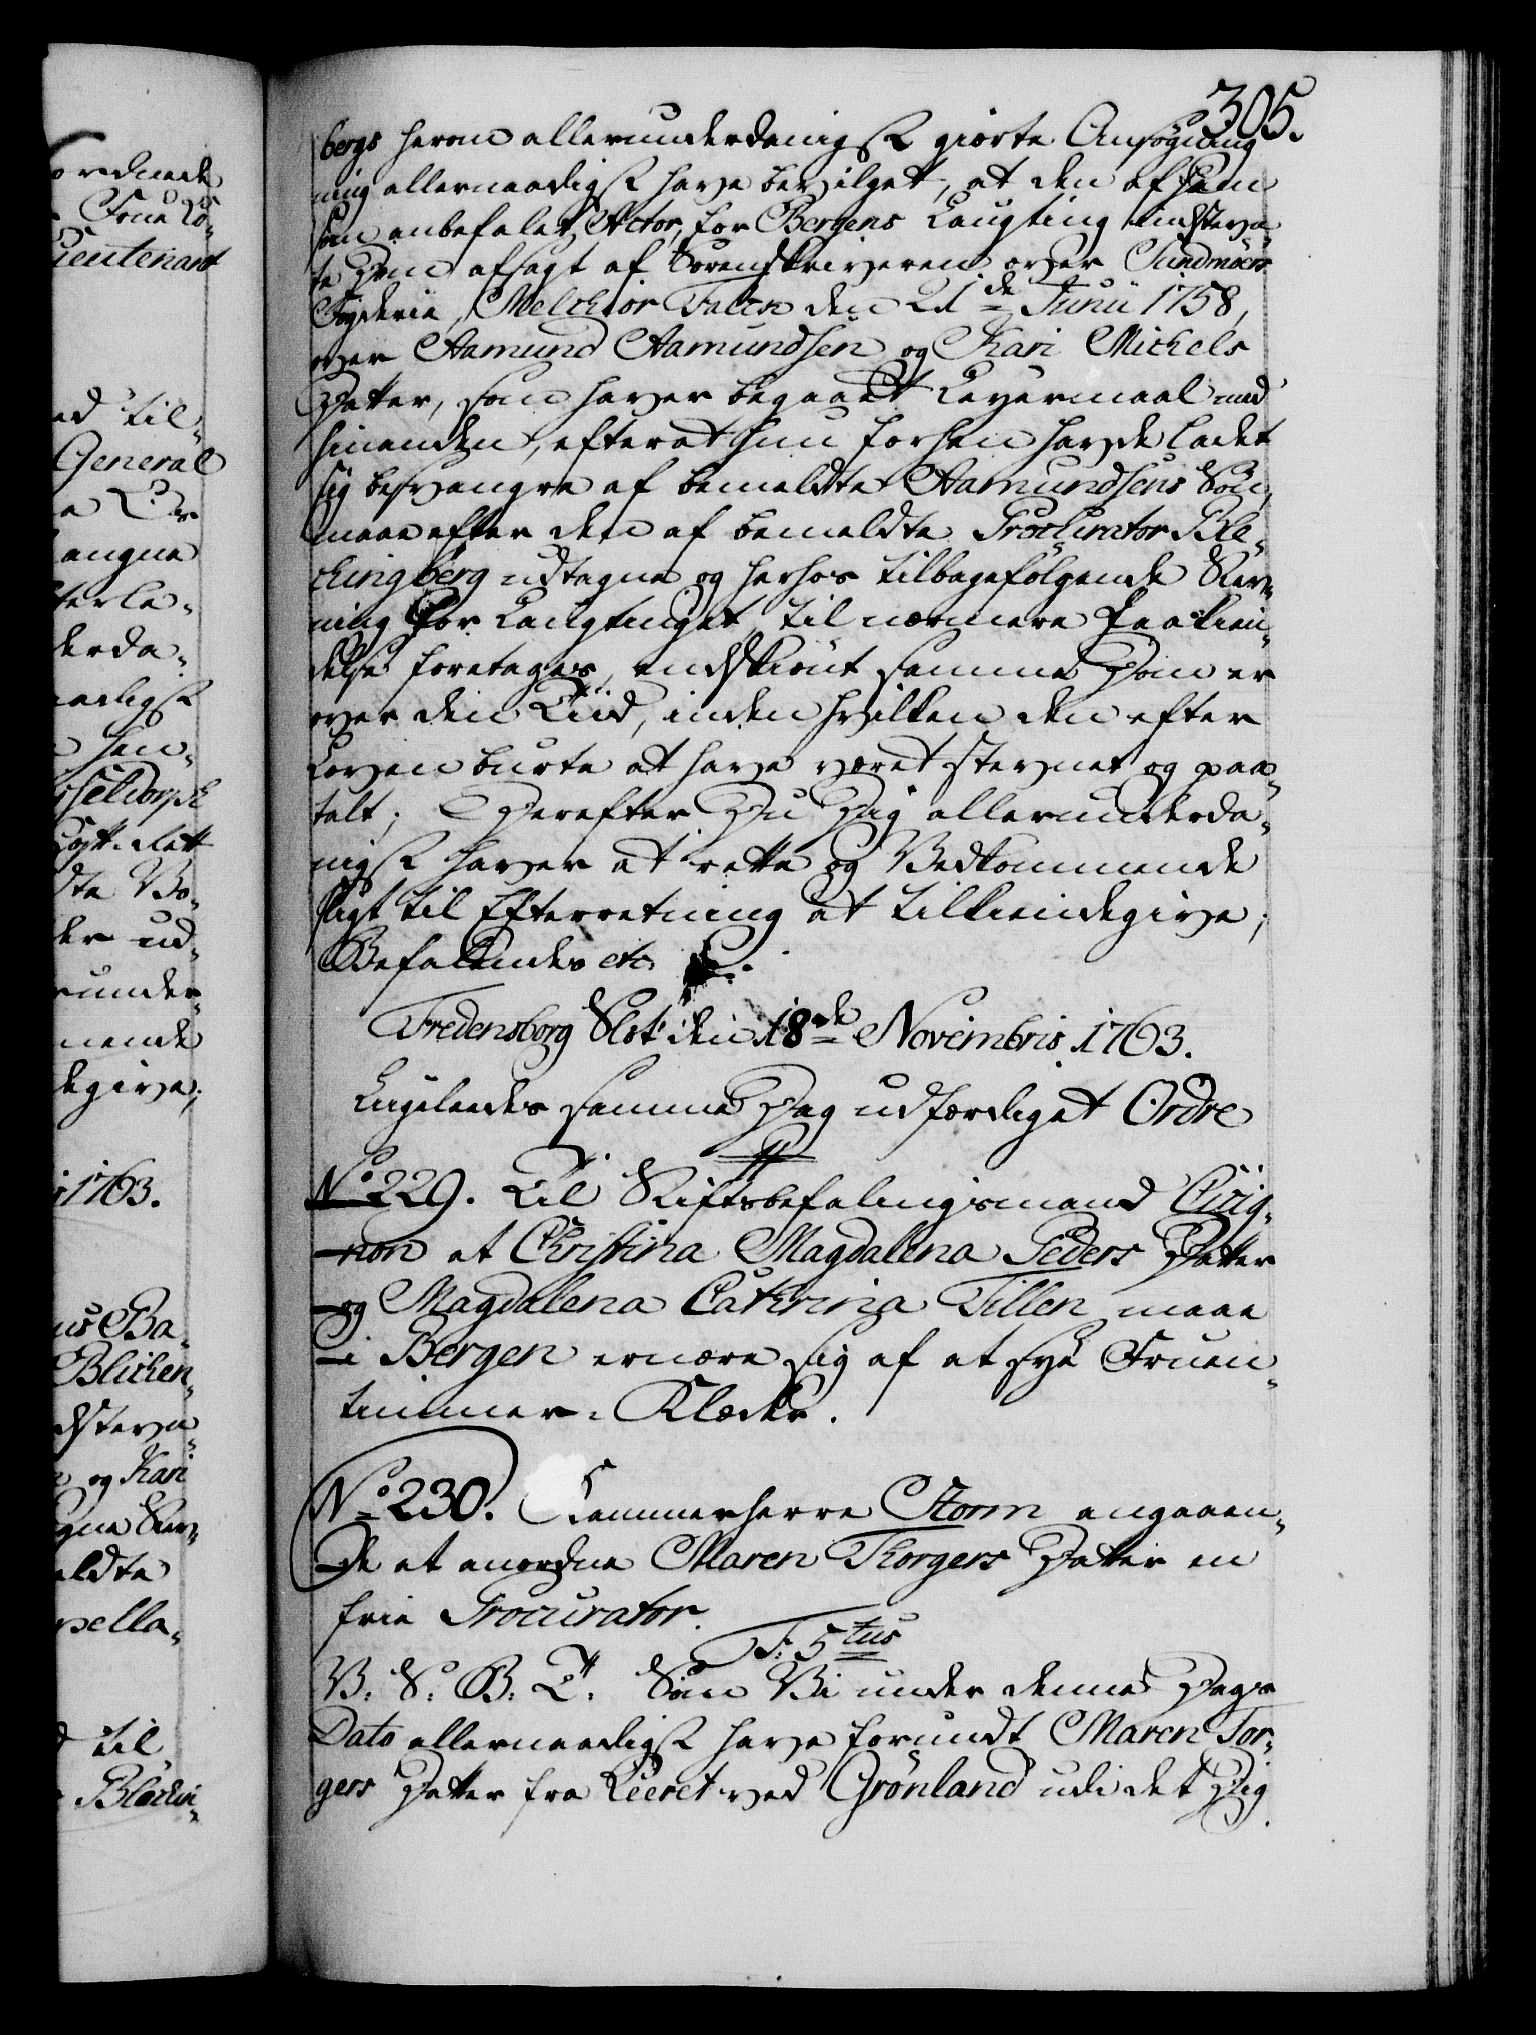 305.
bergs herom allerunderdanigst giorte Ansøgning
allernaadigst have bevilget, at den af ham
som anbefalet Actor, for Bergens Laugting indstevn-
te Dom afsagt af Sorenskriveren over Sundmörs
Fogderie, Melchior Falch den 21de Junii 1758,
over Aamund Aamundsen og Kari Michels
Datter, som haver begaaet Leyermaal med
hinanden, efterat hun forhen havde ladet
sig besvangre af bemeldte Aamundsens Søn,
maae efter den af bemeldte Procurator Ble-
chingberg udtagne og herhos tilbagefølgende Stev-
ning for Laugtinget til nærmere Paakien-
delse foretages, endskiönt samme Dom er
over den Tiid, inden hvilken den efter
Loven burte at have været stevnet og paa-
talt; Derefter Du Dig allerunderda-
nigst haver at rette og Vedkommende
sligt til Efterretning at tilkiendegive;
Befalendes etc.
Fredensborg Slot den 18de Novembris 1763.
Ligeledes samme Dag udfærdiget Ordre
No 229. Til Stiftsbefalingsmand Cicig-
non at Christina Magdalena Peders Datter
og Magdalena Cathrina Tillen maae
i Bergen ernære sig af at sye Fruen-
timmer-Klæder.
No 230. Kammerherre Storm angaaen-
de at anordne Maren Thorgers Datter en
frie Procurator.
F: 5tus
V. S. B. T. Som Vi under denne Dags
Dato allernaadigst have forundt Maren Tor-
gers Datter fra Leeret ved Grönland udi det Dig